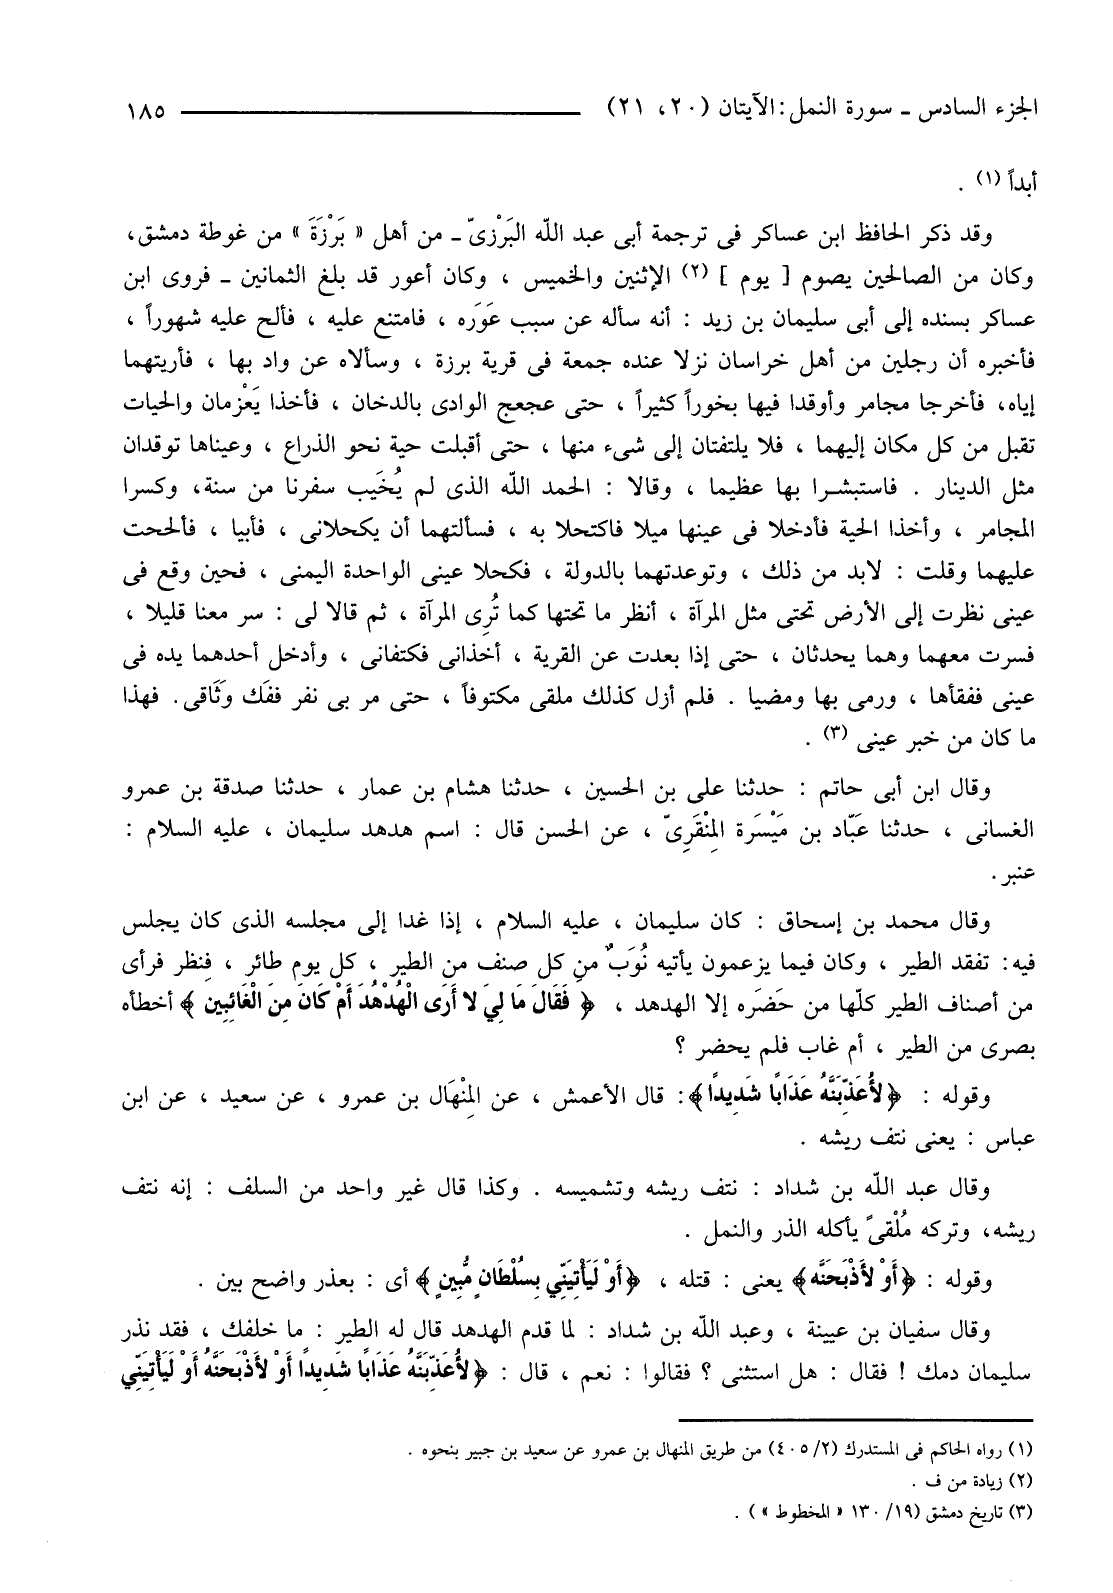 الجزء السادس ـ سورة النمل : الآيتان (٢٠، ٢١) ١٨٥
أبداً (١) .
وقد ذكر الحافظ ابن عساكر فى ترجمة أبى عبد الله البَرْزىّ ـ من أهل « بَرْزَةَ » من غوطة دمشق،
وكان من الصالحين يصوم [ يوم ] (٢) الإثنين والخميس ، وكان أعور قد بلغ الثمانين ـ فروى ابن
عساكر بسنده إلى أبى سليمان بن زيد : أنه سأله عن سبب عَوَره ، فامتنع عليه ، فألح عليه شهوراً ،
فأخبره أن رجلين من أهل خراسان نزلا عنده جمعة فى قرية برزة ، وسألاه عن واد بها ، فأريتهما
إياه، فأخرجا مجامر وأوقدا فيها بخوراً كثيراً ، حتى عجعج الوادى بالدخان ، فأخذا يَعْزمان والحيات
تقبل من كل مكان إليهما ، فلا يلتفتان إلى شىء منها ، حتى أقبلت حية نحو الذراع ، وعيناها توقدان
مثل الدينار . فاستبشرا بها عظيما ، وقالا : الحمد الله الذى لم يُخَيب سفرنا من سنة، وكسرا
المجامر ، وأخذا الحية فأدخلا فى عينها ميلا فاكتحلا به ، فسألتهما أن يكحلانى ، فأبيا ، فألححت
عليهما وقلت : لابد من ذلك ، وتوعدتهما بالدولة ، فكحلا عينى الواحدة اليمنى ، فحين وقع فى
عينى نظرت إلى الأرض تحتى مثل المرآة ، أنظر ما تحتها كما تُرِى المرآة ، ثم قالا لى : سر معنا قليلا ،
فسرت معهما وهما يحدثان ، حتى إذا بعدت عن القرية ، أخذانى فكتفانى ، وأدخل أحدهما يده فى
عينى ففقأها ، ورمى بها ومضيا . فلم أزل كذلك ملقى مكتوفاً ، حتى مر بى نفر ففَك وَثَاقى. فهذا
ما كان من خبر عينى (٣) .
وقال ابن أبى حاتم : حدثنا على بن الحسين ، حدثنا هشام بن عمار ، حدثنا صدقة بن عمرو
الغسانى ، حدثنا عَبَّاد بن مَيْسَرة المِنْقَرِىّ ، عن الحسن قال : اسم هدهد سليمان ، عليه السلام :
عنبر.
وقال محمد بن إسحاق : كان سليمان ، عليه السلام ، إذا غدا إلى مجلسه الذى كان يجلس
فيه: تفقد الطير ، وكان فيما يزعمون يأتيه نُوَبٌ من كل صنف من الطير ، كل يوم طائر ، فنظر فرأى
من أصناف الطير كلّها من حَضَره إلا الهدهد ، ﴿ فَقَالَ مَا لِيَ لا أَرَى الْهُدْهُدَ أَمْ كَانَ مِنَ الْغَائِبِين ﴾ أخطأه
بصرى من الطير ، أم غاب فلم يحضر ؟
وقوله : ﴿ لأُعَذِّبَنَّهُ عَذَابًا شَدِيدًا ﴾: قال الأعمش ، عن المِنْهَال بن عمرو ، عن سعيد ، عن ابن
عباس : يعنى نتف ريشه .
وقال عبد الله بن شداد : نتف ريشه وتشميسه . وكذا قال غير واحد من السلف : إنه نتف
ريشه، وتركه مُلْقىً يأكله الذر والنمل .
وقوله : ﴿ أَوْ لأَذْبَحَنَّه ﴾ يعنى : قتله ، ﴿ أَوْ لَيَأْتِيَنِّي بِسُلْطَانٍ مُّبِينٍ ﴾ أى : بعذر واضح بين .
وقال سفيان بن عيينة ، وعبد الله بن شداد : لما قدم الهدهد قال له الطير : ما خلفك ، فقد نذر
سليمان دمك ! فقال : هل استثنى ؟ فقالوا : نعم ، قال : ﴿ لأُعَذِّبَنَّهُ عَذَابًا شَدِيدًا أَوْ لأَذْبَحَنَّهُ أَوْ لَيَأْتِيَنِّي
(١) رواه الحاكم فى المستدرك (٢/ ٤٠٥) من طريق المنهال بن عمرو عن سعيد بن جبير بنحوه .
(٢) زيادة من ف .
(٣) تاريخ دمشق (١٩/ ١٣٠ « المخطوط ») .